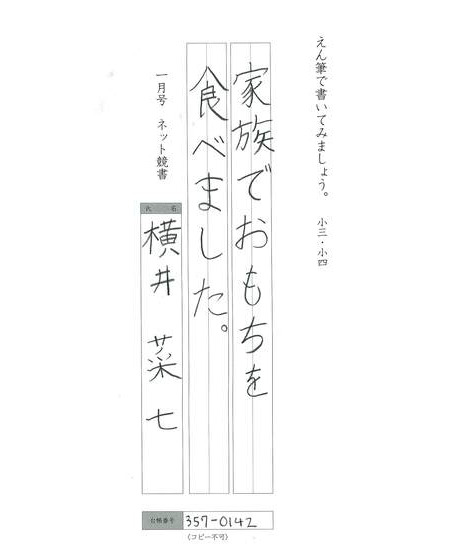 えん筆で書いてみましょう。 小三・小四
家族でおもちを
食べました。
一月号 ネット競書
氏名
横井 菜七
台帳番号 357-0142
〈コピー不可〉